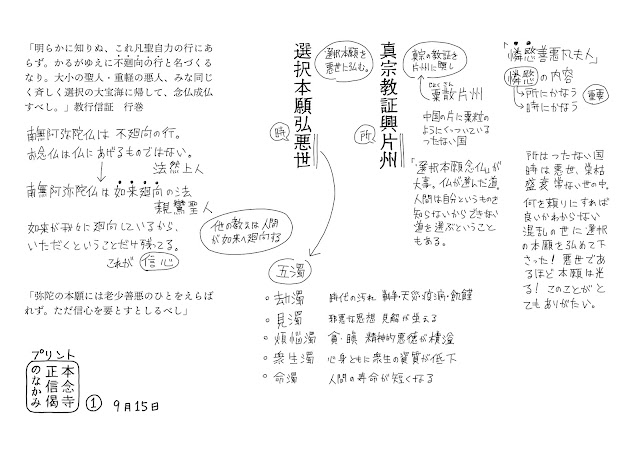 「憐愍善悪凡夫人」
憐愍の内容
→所にかなう
→時にかなう
重要
所はつたない国
時は悪世、栄枯
盛衰常ない世の中。
何を頼りにすれば
良いかわからない
混乱の世に選択
の本願を弘めて下
さった！悪世であ
るほど本願は光
る！このことがと
てもありがたい。
真宗教証興片州
真宗の教証を
片州に興し
所
粟散片州
中国の片に粟粒の
ようにくっついている
つたない国
「選択本願念仏」が
大事。仏が選んだ道。
人間は自分というものを
知らないからできない
道を選ぶということ
もある。
選択本願弘悪世
選択本願を
悪世に弘む。
時
五濁
劫濁 時代の汚れ 戦争・天災・疫病・飢饉
見濁 邪悪な思想 見解が栄える
煩悩濁 貪・瞋 精神的悪徳が横溢
衆生濁 心身ともに衆生の資質が低下
命濁 人間の寿命が短くなる
「明らかに知りぬ、これ凡聖自力の行にあ
らず。かるがゆえに不廻向の行と名づくる
なり。大小の聖人・重軽の悪人、みな同じ
く斉しく選択の大宝海に帰して、念仏成仏
すべし。」教行信証　行巻
南無阿弥陀仏は 不廻向の行。
お念仏は仏にあげるものではない。
法然上人
南無阿弥陀仏は 如来廻向の法
親鸞聖人
如来が我々に廻向しているから、
いただくということだけ残ってる。
これが 信心
他の教えは人間
が如来へ廻向する
「弥陀の本願には老少善悪のひとをえらば
れず。ただ信心を要とすとしるべし」
プリント
本念寺
正信偈
のなかみ
① 9月15日